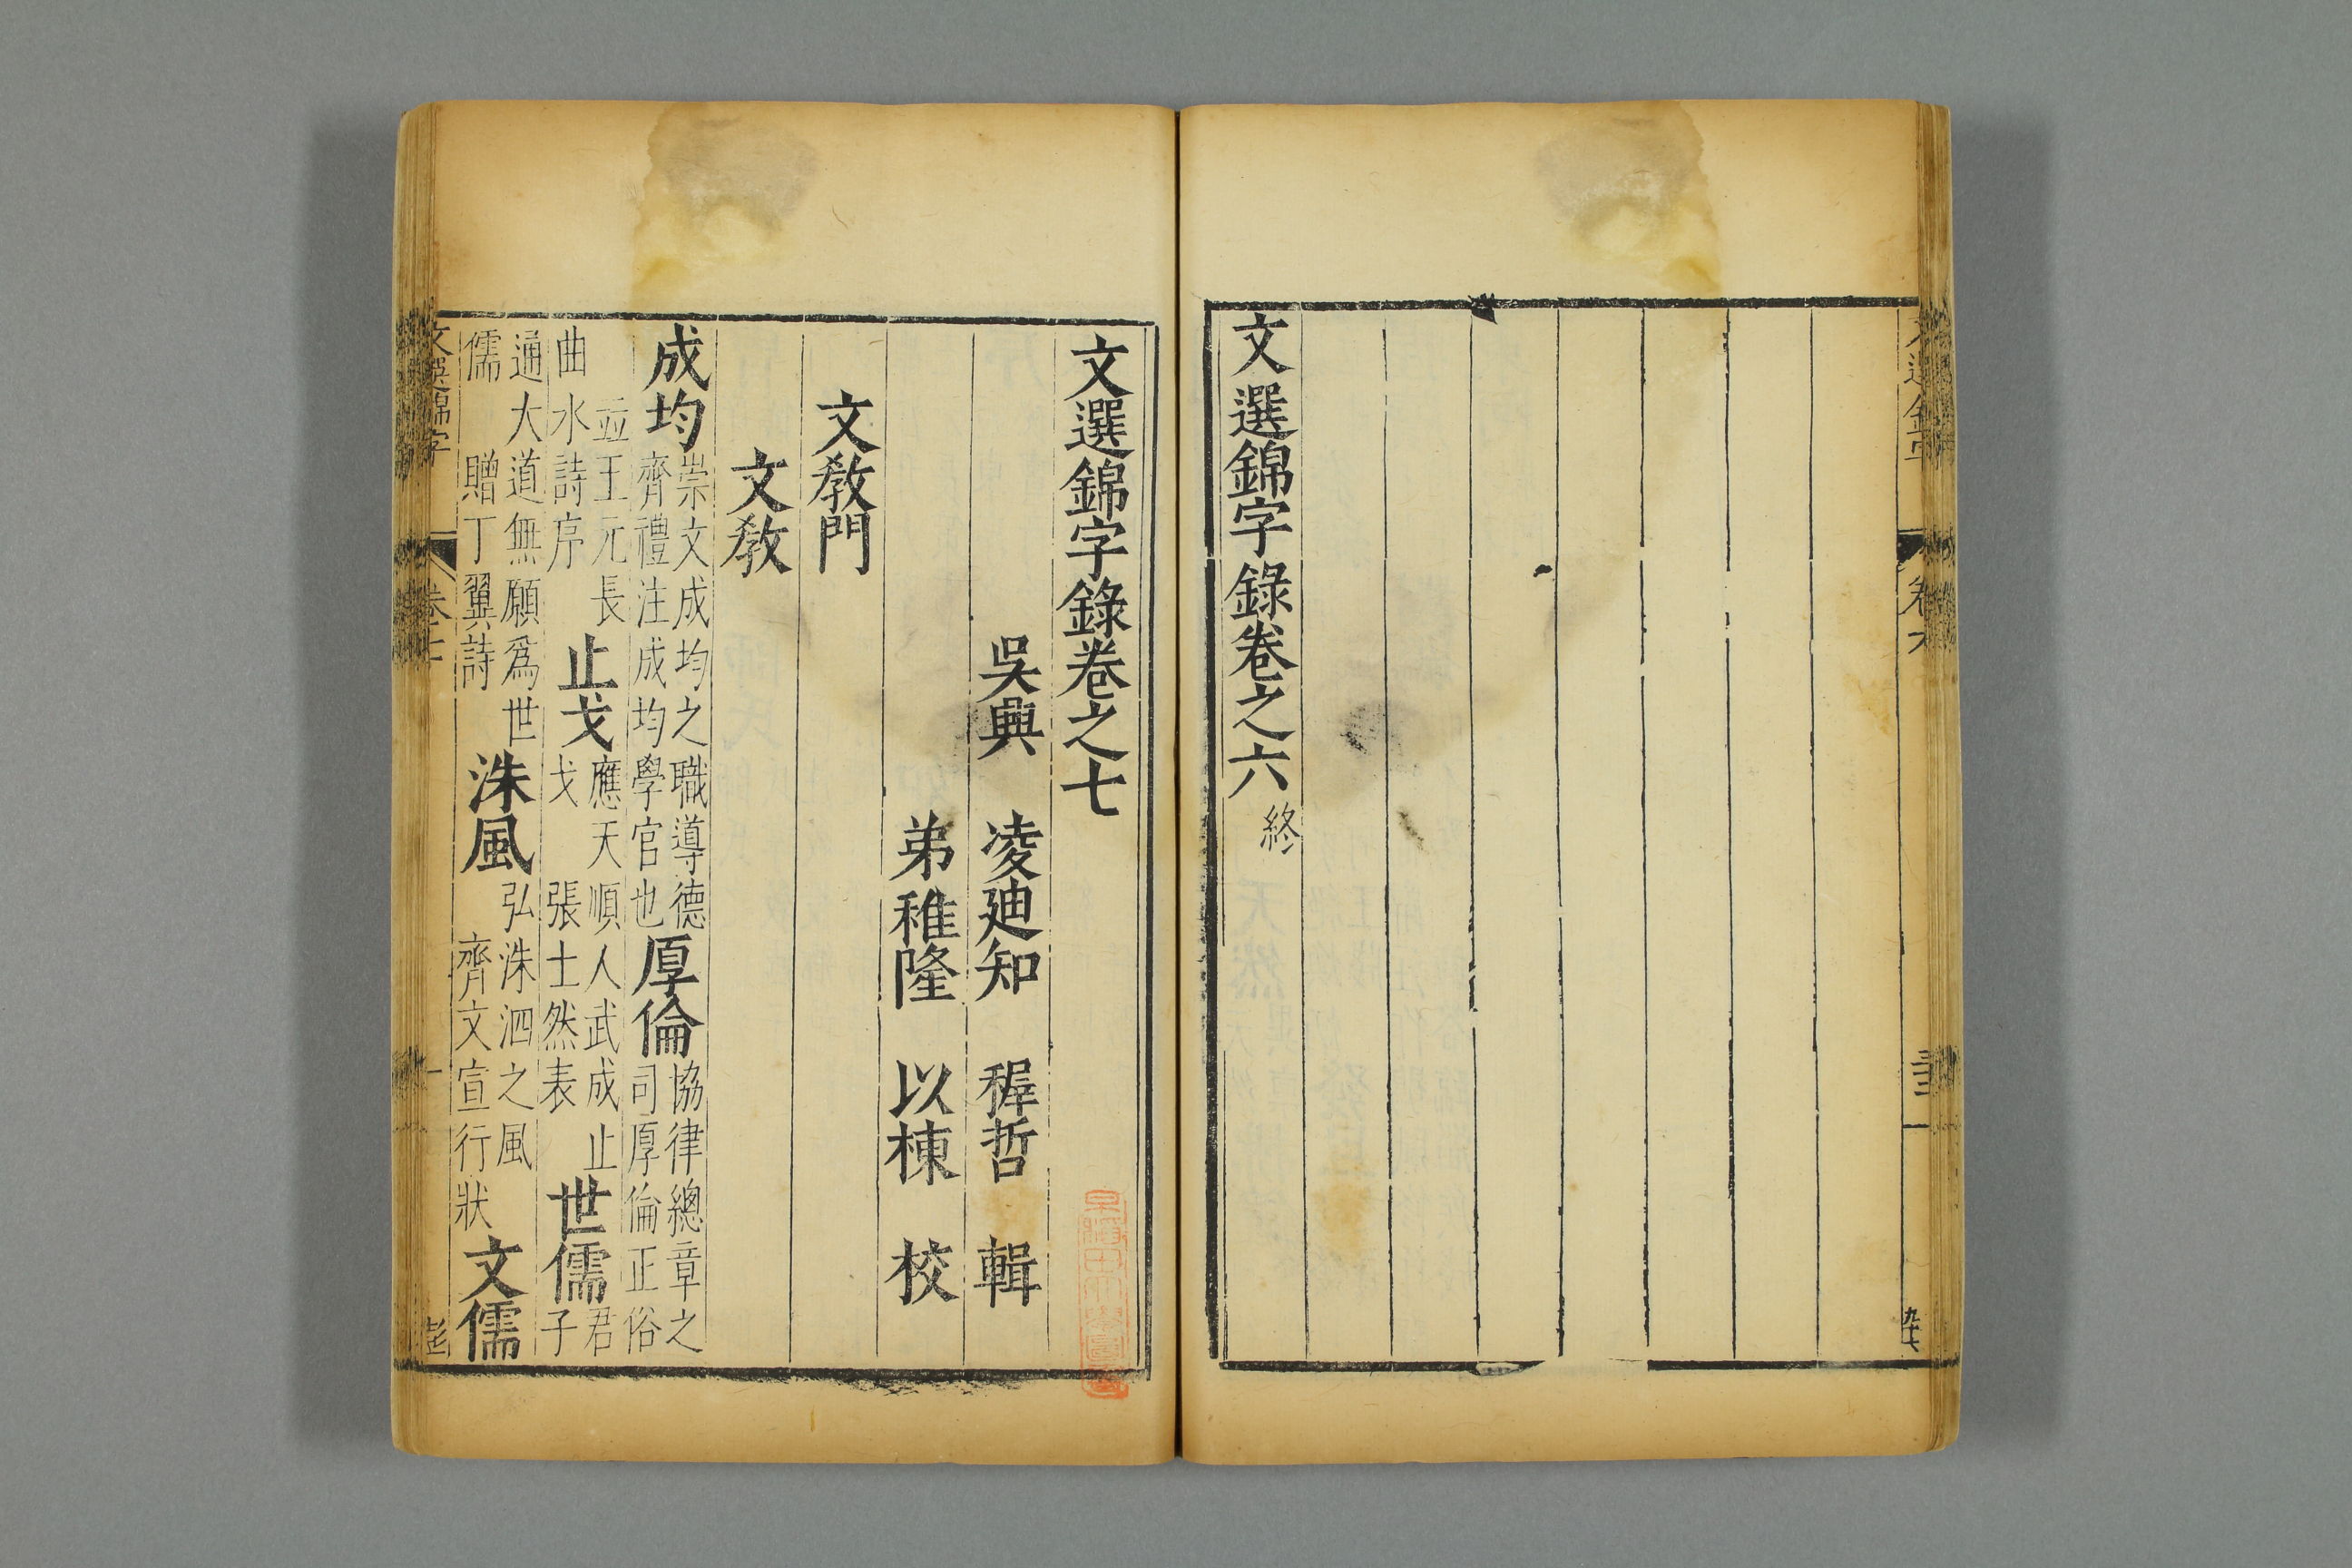 文選錦字
卷六
文選錦字錄卷之六終
文選錦字錄卷之七
吳興 凌迪知 稺哲 輯
弟稚隆 以棟 校
文教門
文教
成均 崇文成均之職導德齊禮注成均學官也 厚倫 協律總章之司厚倫正俗
並王元長曲水詩序 止戈 應天順人武成止戈 張士然表 世儒 君子
通大道無願爲世儒 贈丁翼詩 洙風 弘洙泗之風齊文宣行狀 文儒
文選錦字
卷七
一